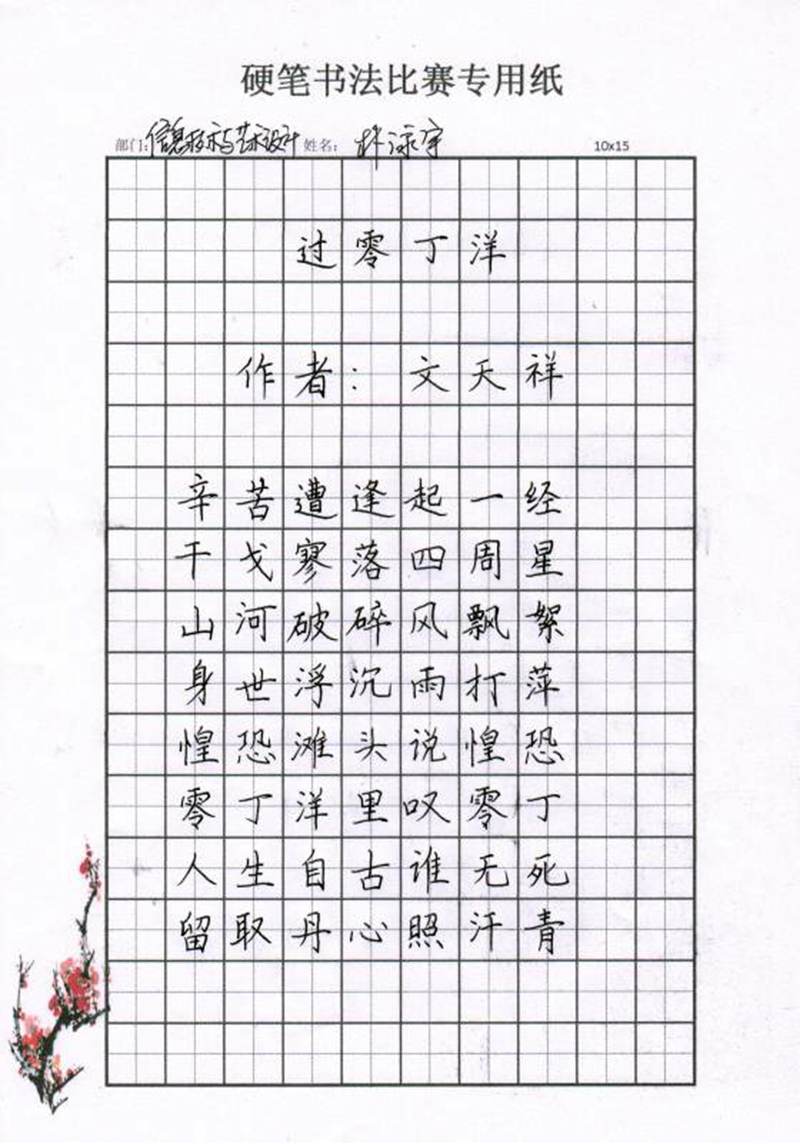 硬笔书法比赛专用纸
部门: 信息技术与艺术设计 姓名: 林泳宇 10x15
过零丁洋
作者：文天祥
辛苦遭逢起一经
干戈寥落四周星
山河破碎风飘絮
身世浮沉雨打萍
惶恐滩头说惶恐
零丁洋里叹零丁
人生自古谁无死
留取丹心照汗青